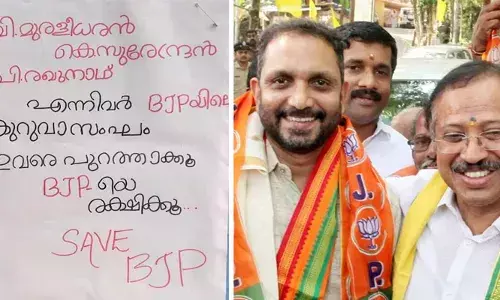 വി.മുരളീധരൻ
കെ.സുരേന്ദ്രൻ
പി.രഘുനാഥ്
എന്നിവർ BJPയിലെ
കുറുവാസംഘം
ഇവരെ പുറത്താക്കൂ
BJP യെ
രക്ഷിക്കൂ...
SAVE
BJP
J.
P.